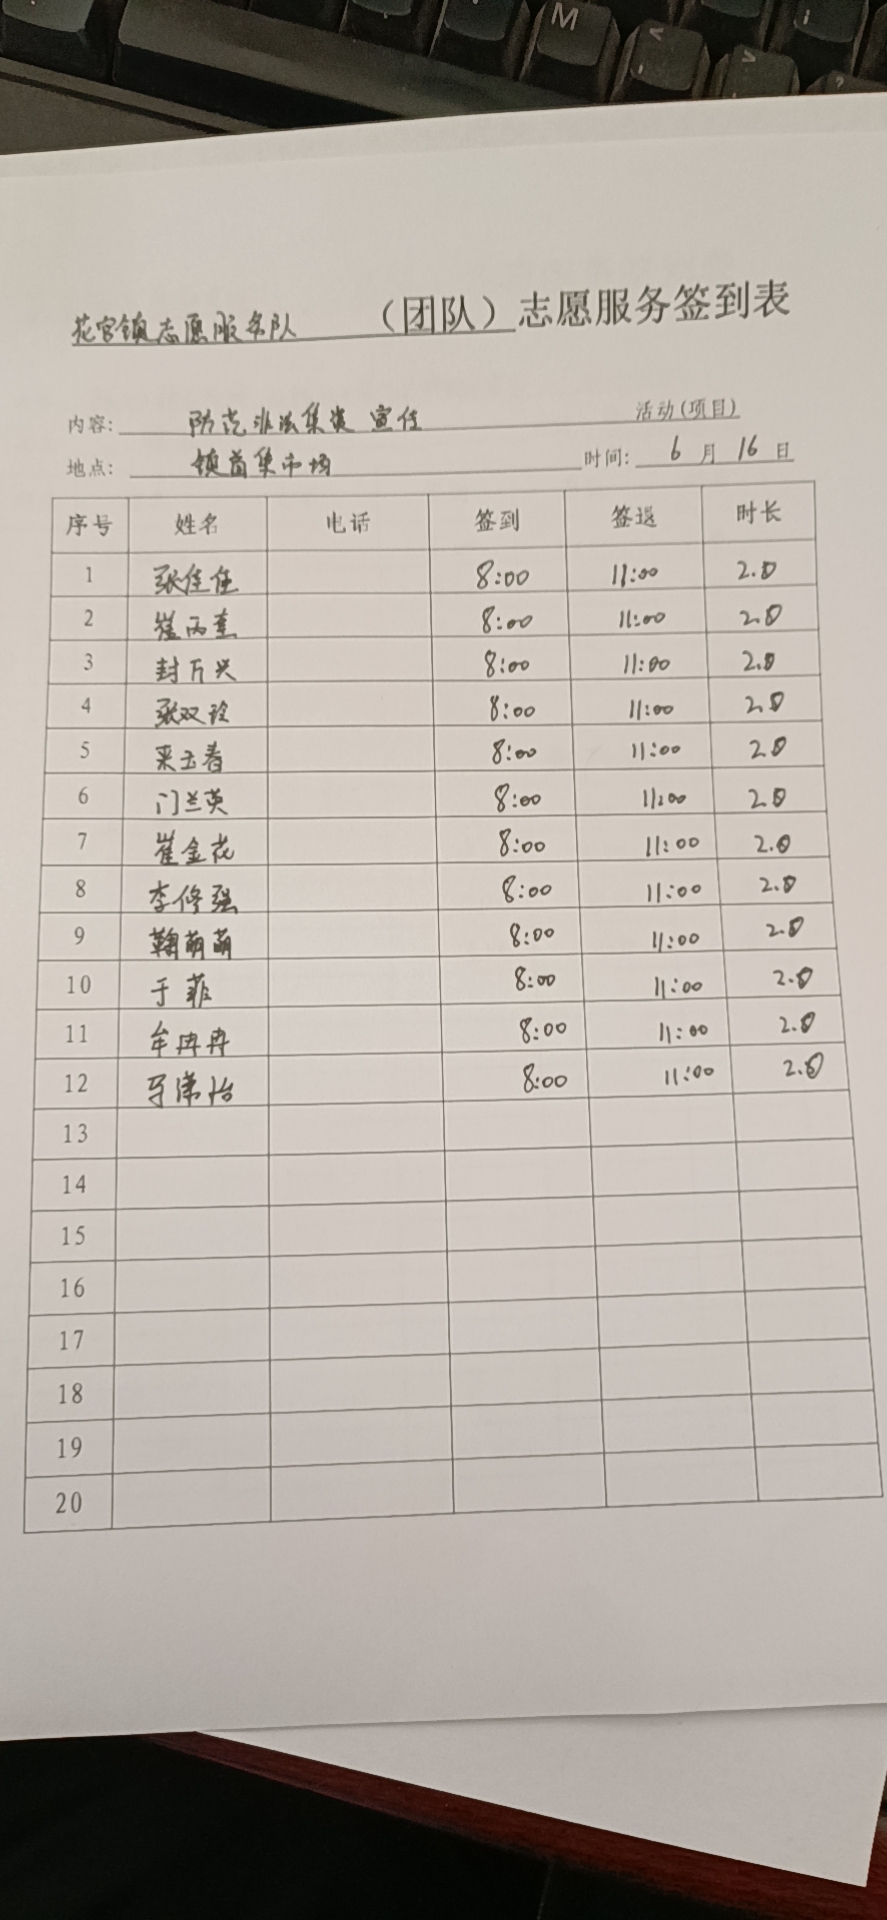 花官镇志愿服务队 （团队）志愿服务签到表
内容: 防范非法集资 宣传 活动(项目)
地点: 镇前集市场 时间: 6 月 16 日
序号 姓名 电话 签到 签退 时长
1 张佳佳 8:00 11:00 2.0
2 崔丙奎 8:00 11:00 2.0
3 封万兴 8:00 11:00 2.0
4 张双玲 8:00 11:00 2.0
5 来玉春 8:00 11:00 2.0
6 门兰英 8:00 11:00 2.0
7 崔金花 8:00 11:00 2.0
8 李修强 8:00 11:00 2.0
9 鞠萌萌 8:00 11:00 2.0
10 于菲 8:00 11:00 2.0
11 牟冉冉 8:00 11:00 2.0
12 8:00 11:00 2.0
13
14
15
16
17
18
19
20